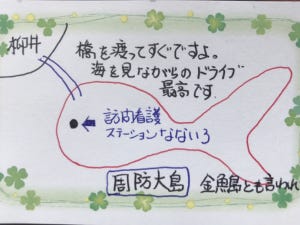 柳井
橋を渡ってすぐですよ。
海を見ながらのドライブ
最高です。
訪問看護
ステーションなないろ
周防大島
金魚島とも言われ